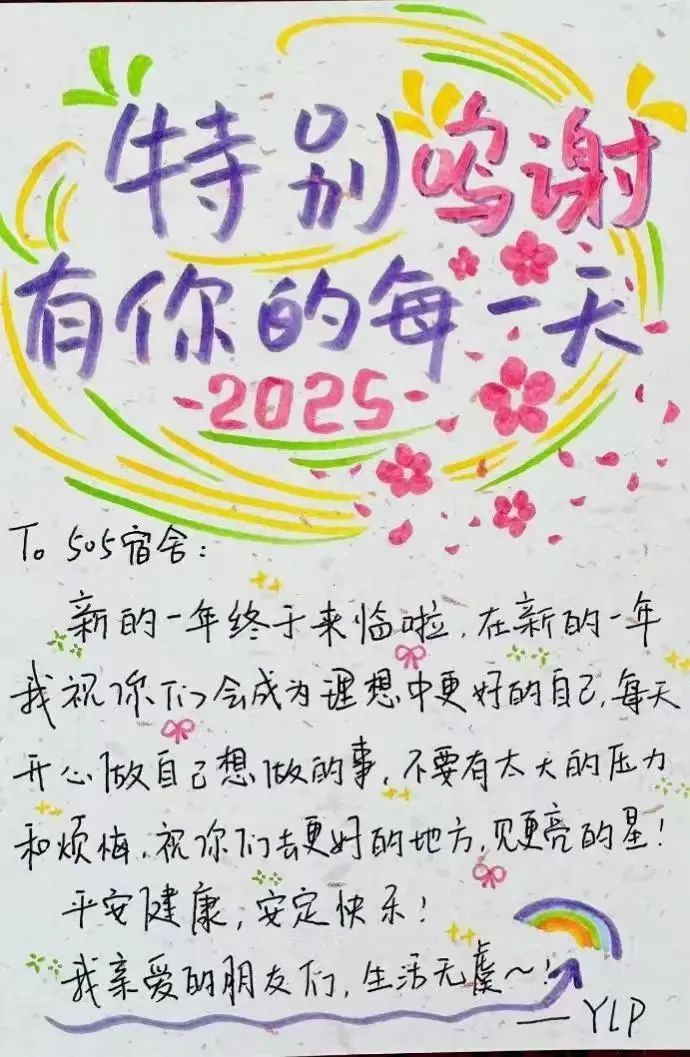 特别鸣谢
有你的每一天
-2025-
To 505宿舍:
新的一年终于来临啦,在新的一年
我祝你们会成为理想中更好的自己,每天
开心做自己想做的事,不要有太大的压力
和烦恼,祝你们去更好的地方,见更亮的星!
平安健康,安定快乐!
我亲爱的朋友们,生活无虞~!
——YLP